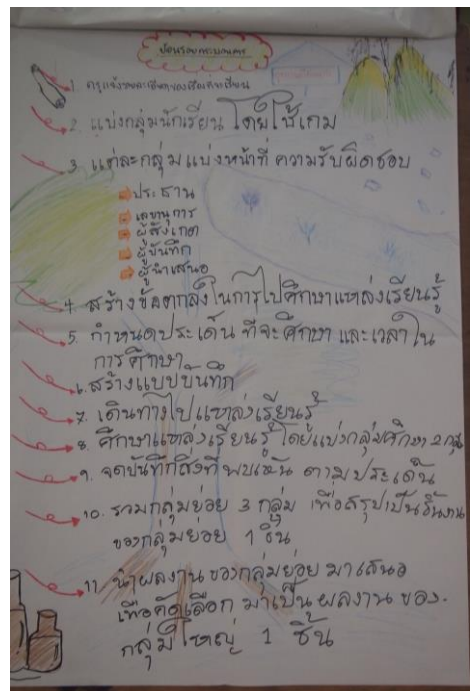 ย้อนรอยกระบวนการ
1. ครูแจ้งรายละเอียดของเรื่องที่จะเรียน
2. แบ่งกลุ่มนักเรียน โดยใช้เกม
3. แต่ละกลุ่มแบ่งหน้าที่ ความรับผิดชอบ
ประธาน
เลขานุการ
ผู้สังเกต
ผู้บันทึก
ผู้นำเสนอ
4. สร้างข้อตกลงในการไปศึกษาแหล่งเรียนรู้
5. กำหนดประเด็น ที่จะศึกษา และเวลาใน
การศึกษา
6. สร้างแบบบันทึก
7. เดินทางไปแหล่งเรียนรู้
8. ศึกษาแหล่งเรียนรู้ โดยแบ่งกลุ่มศึกษา
9. จดบันทึกสิ่งที่พบเห็น ตามประเด็น
10. รวมกลุ่มย่อย 3 กลุ่ม เพื่อสรุปเป็นชิ้นงาน
ของกลุ่มย่อย 1 ชิ้น
11. นำผลงานของกลุ่มย่อย มาเสนอ
เพื่อคัดเลือก มาเป็นผลงาน ของ
กลุ่มใหญ่ 1 ชิ้น